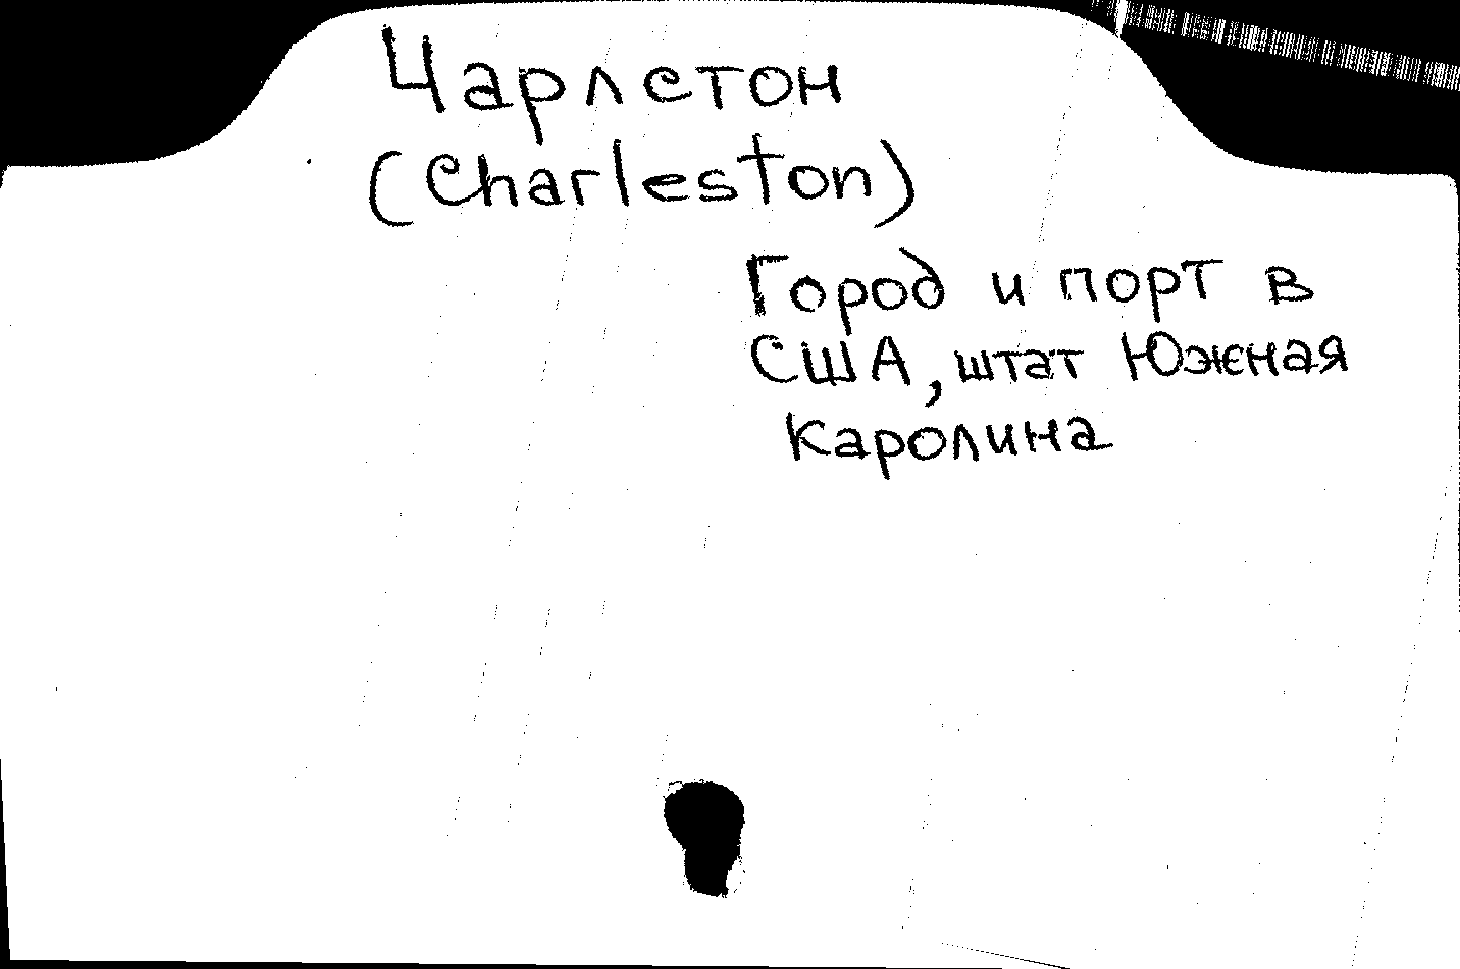 Чарлстон
(Charleston)
Город и порт в
США, штат Южная
Каролина